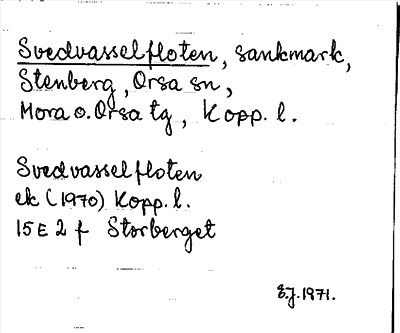 Svedvasselfloten, sankmark,
Stenberg, Orsa sn,
Mora o. Orsa tg, Kopp. l.
Svedvasselfloten
ek (1970) Kopp. l.
15E 2 f Storberget
E.J. 1971.